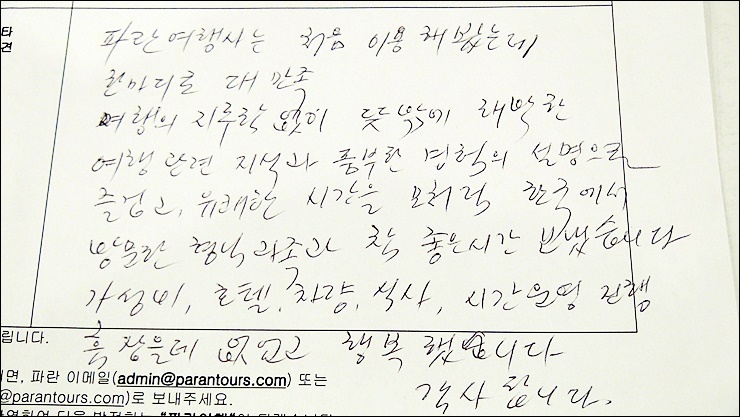 타
견
파란여행사는 처음 이용해봤는데
한마디로 대 만족
여행의 지루함 없이 뜻밖에 해박한
여행 관련 지식과 풍부한 경험의 설명으로
즐겁고, 유쾌한 시간을 모처럼 한국에서
방문한 형님과 좋은시간 보냈습니다
가성비, 호텔, 차량, 식사, 시간운영 진행
흠 잡을데 없었고 행복했습니다
감사합니다.
립니다.
면, 파란 이메일(admin@parantours.com) 또는
@parantours.com)로 보내주세요.